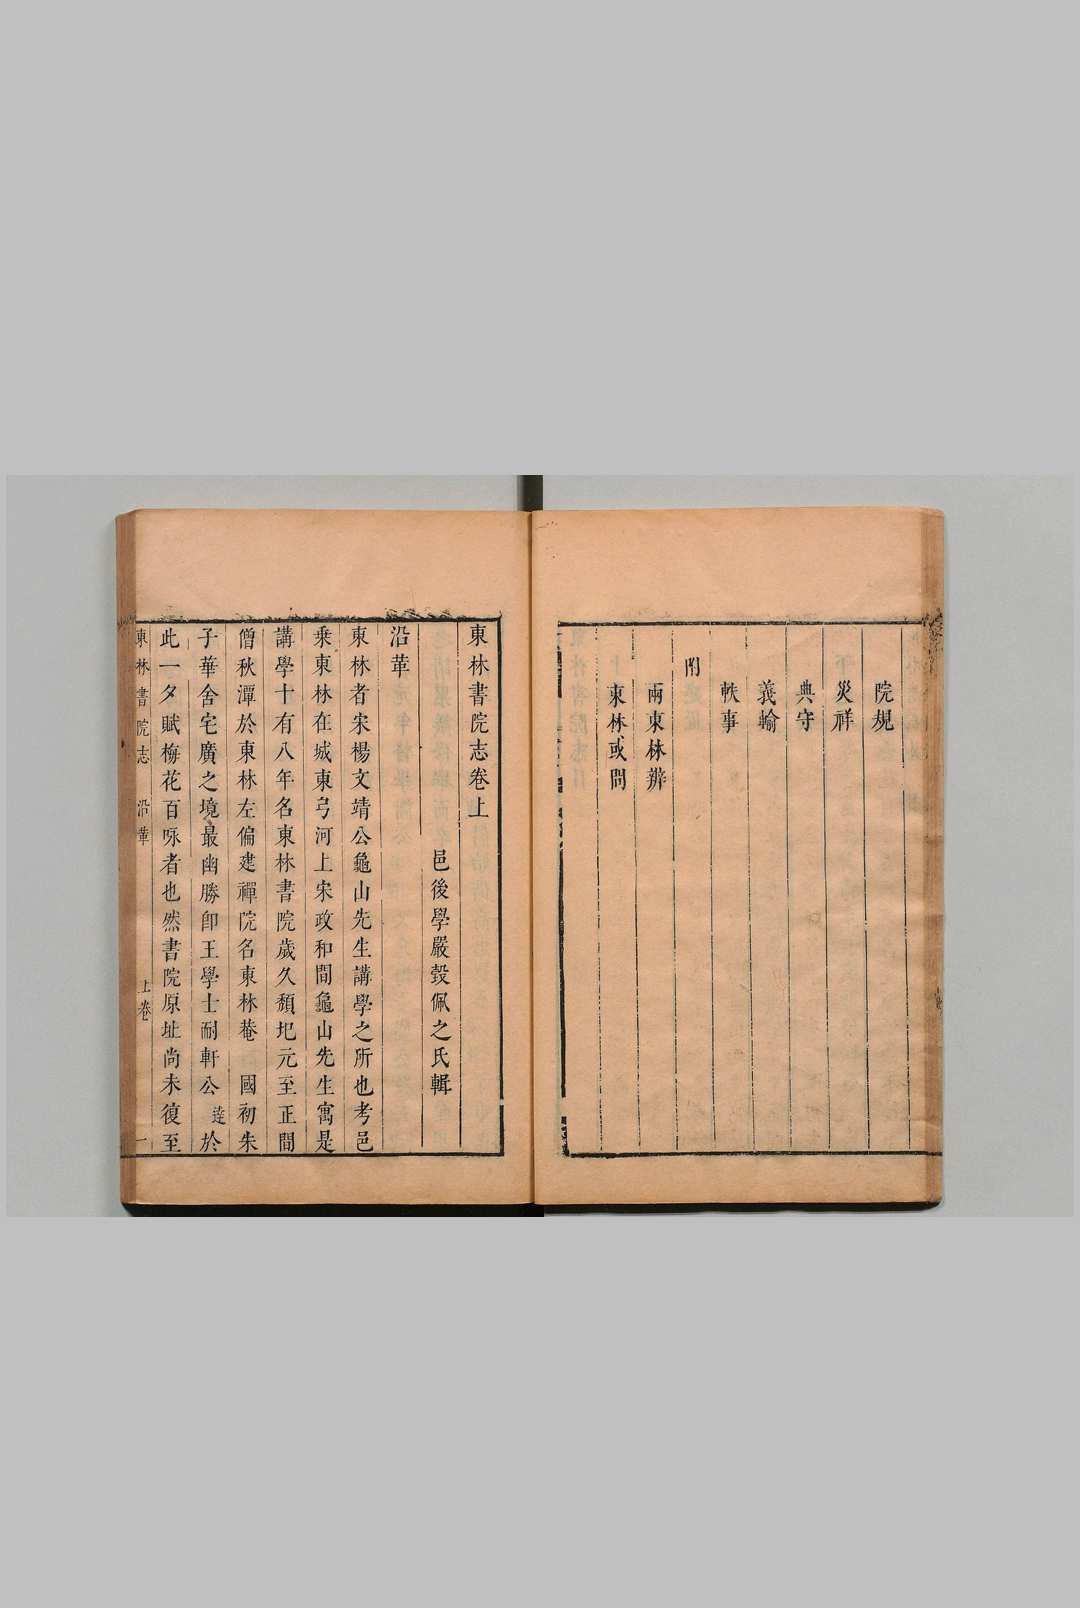 院規
災祥
典守
義輸
軼事
附
兩東林辨
東林或問
東林書院志卷上
邑後學嚴瑴佩之氏輯
沿革
東林者宋楊文靖公龜山先生講學之所也考邑
乗東林在城東弓河上宋政和間龜山先生寓是
講學十有八年名東林書院歲久頹圮元至正間
僧秋潭於東林左偏建禪院名東林菴 國初朱
子華舍宅廣之境最幽勝卽王學士耐軒公達於
此一夕賦梅花百咏者也然書院原址尚未復至
東林書院志 沿革 上卷 一